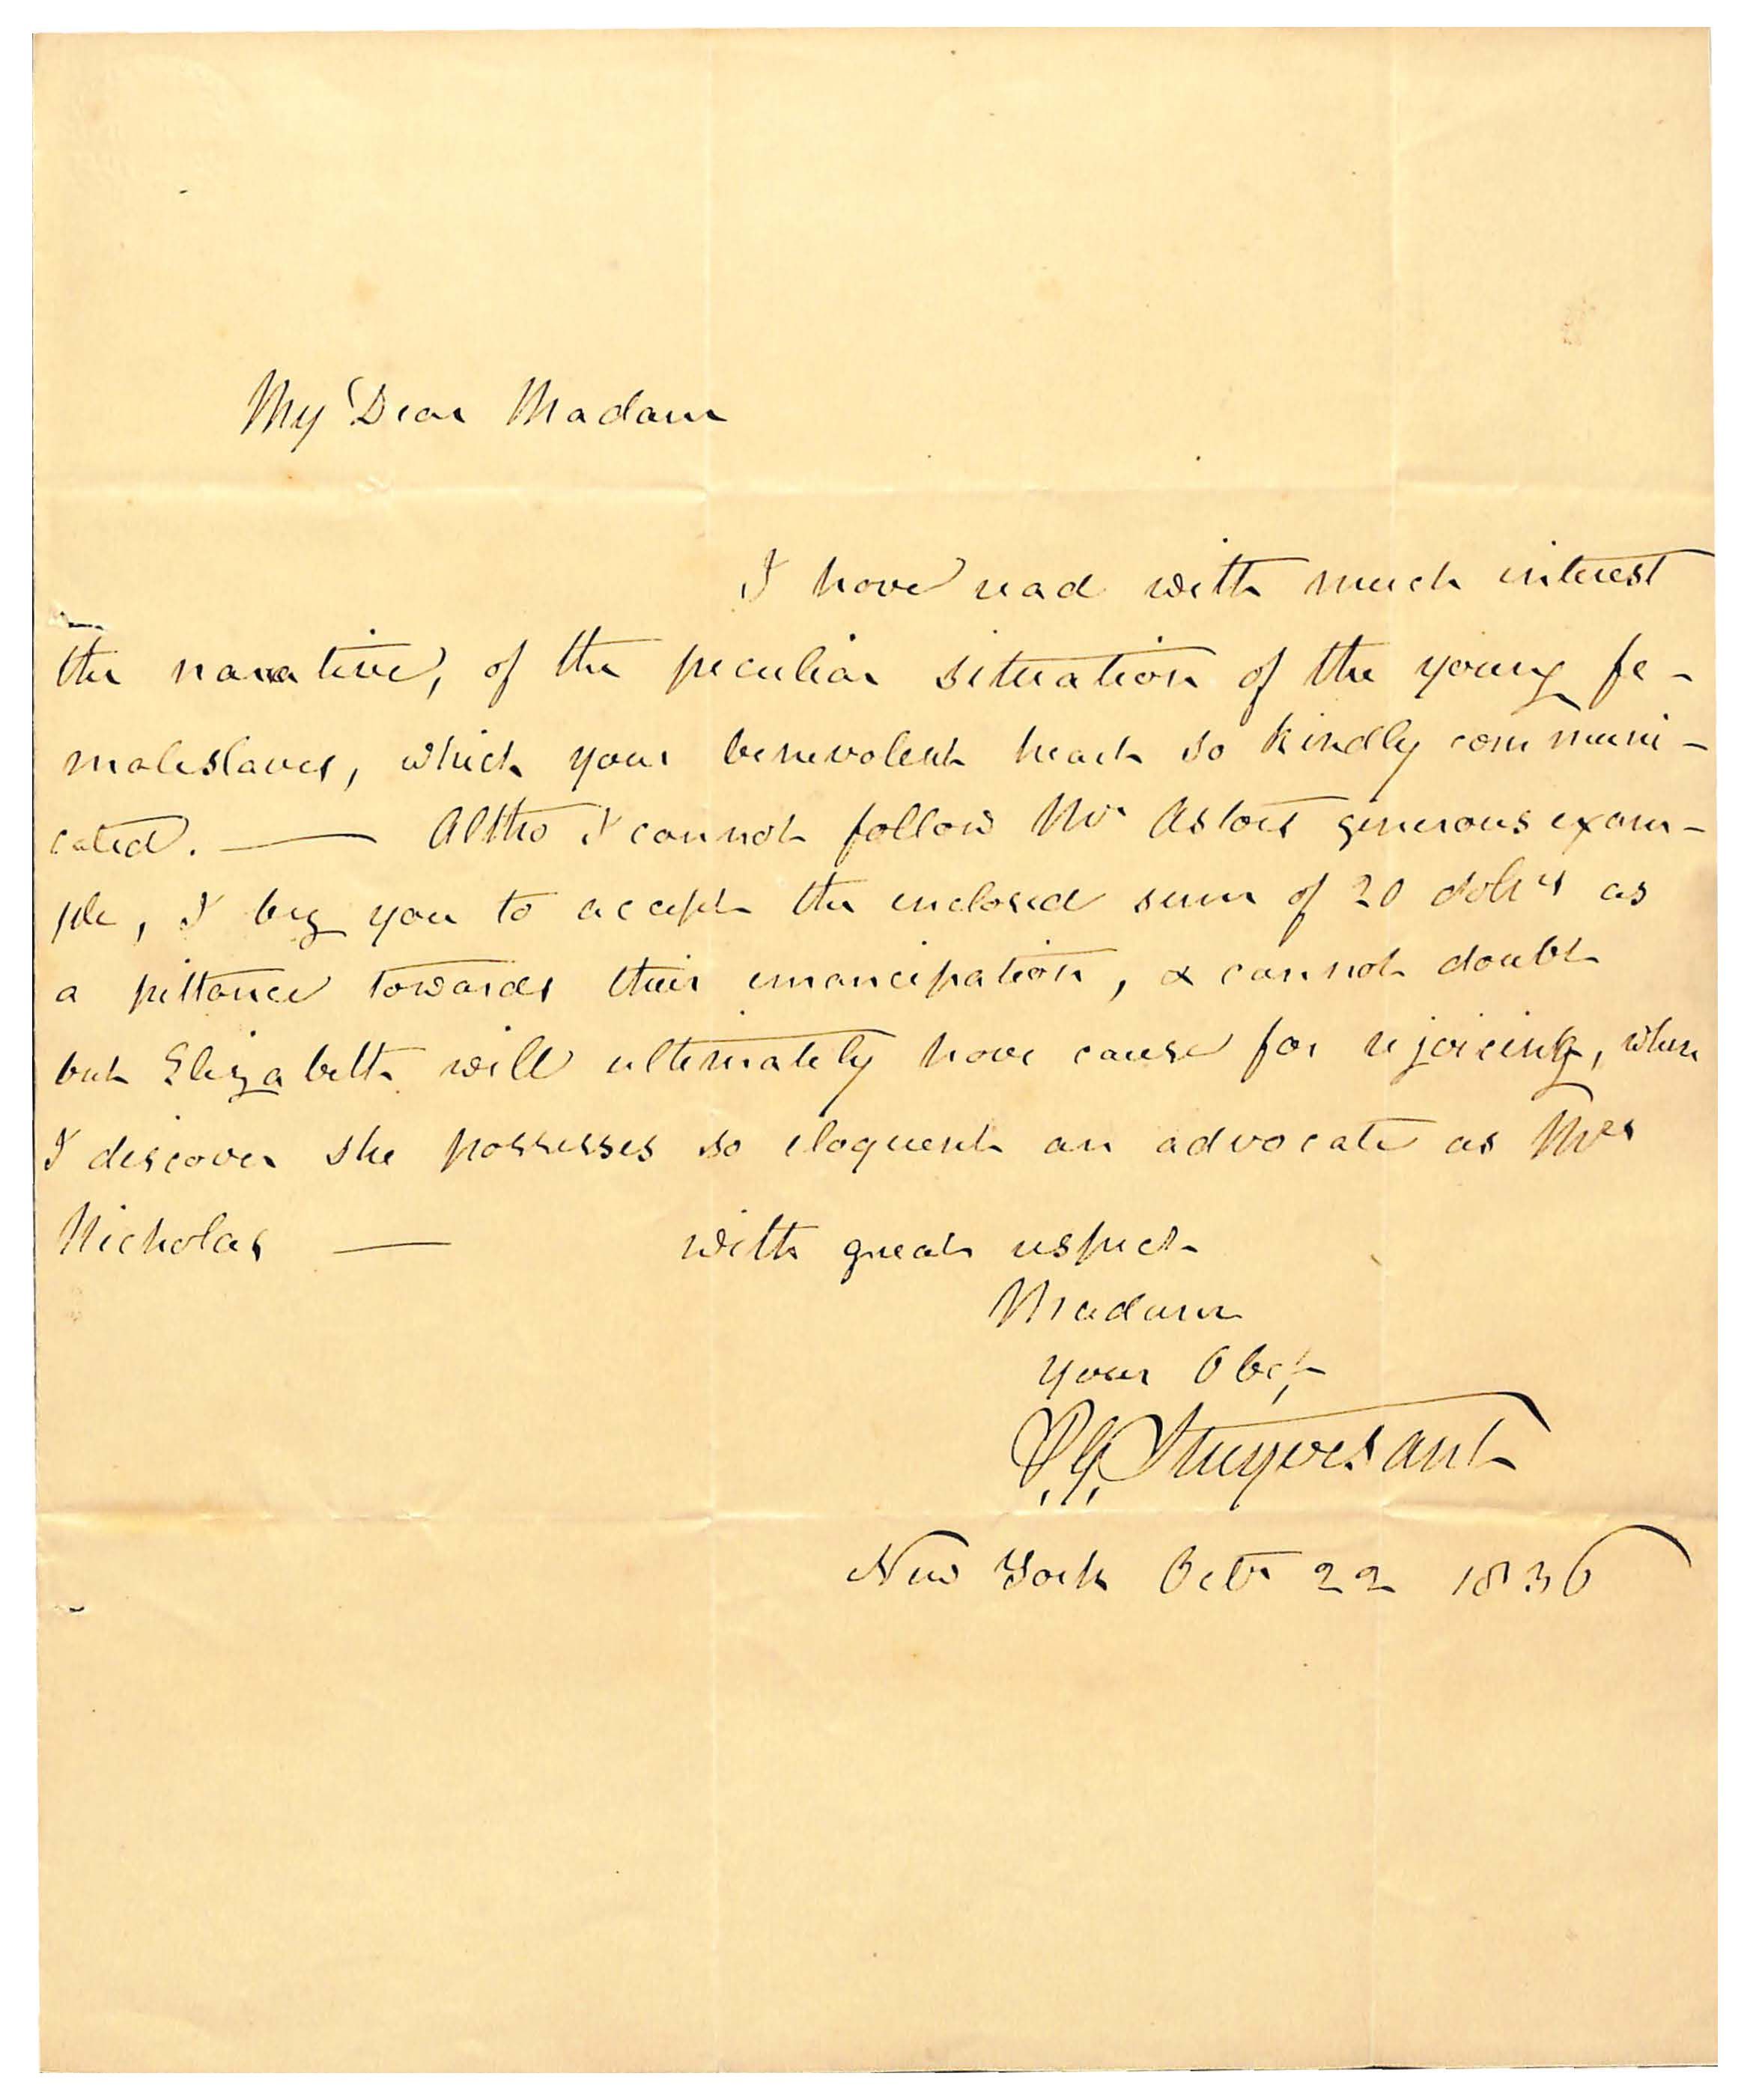 My Dear Madam
I have read with much interest
the narrative, of the peculiar situation of the young fe-
male slaves, which your benevolent heart so kindly communi-
cated. — Altho I cannot follow Mr Astors generous exam-
ple, I beg you to accept the enclosed sum of 20 dolrs as
a pittance towards their emancipation, & cannot doubt
but Elizabeth will ultimately have cause for rejoicing, when
I discover she possesses so eloquent an advocate as Mrs
Nicholas — with great respect
Madam
your Obt
P. G. Stuyvesant
New York Octr 22 1836